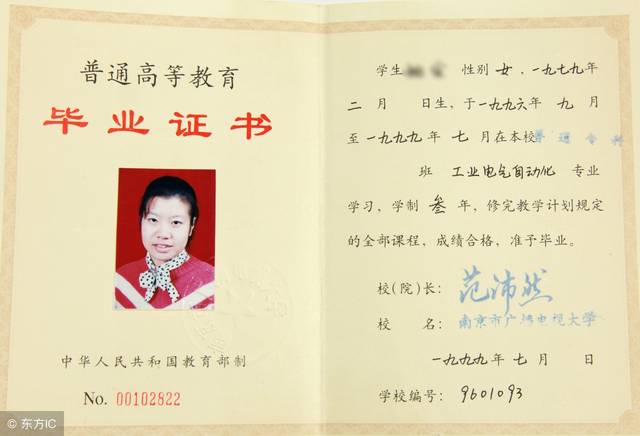 普通高等教育
毕业证书
中华人民共和国教育部制
No. 00102822
学生 性别女,一九七九年
二月 日生,于一九九六年九月
至一九九九年七月在本校普通专科
班 工业电气自动化 专业
学习,学制叁年,修完教学计划规定
的全部课程,成绩合格,准予毕业。
校(院)长: 范沛然
校 名: 南京市广播电视大学
一九九九年七月 日
学校编号: 9601093
© 东方IC